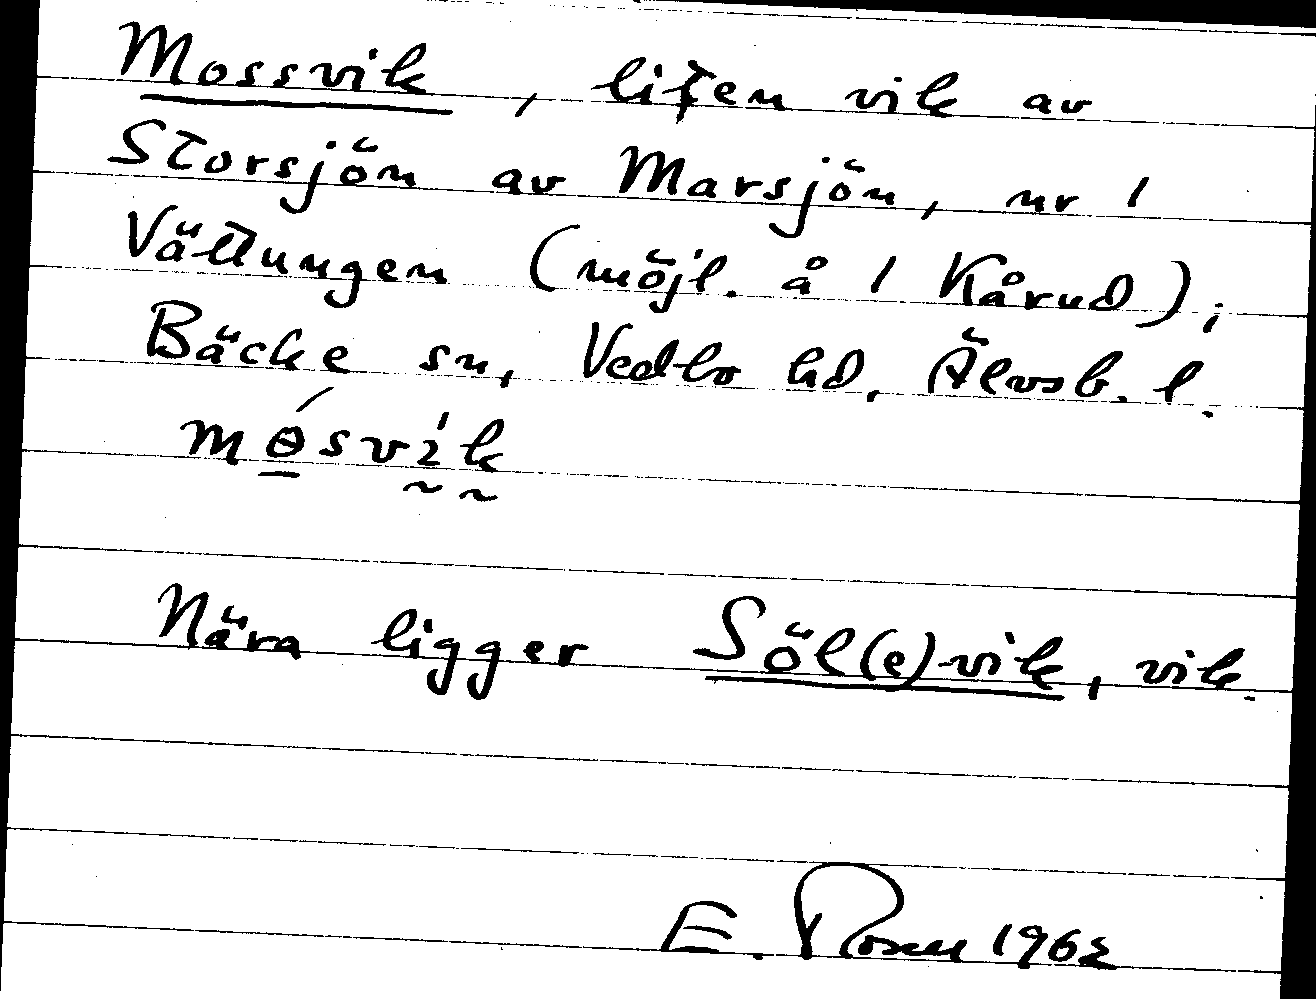 Mossvik, liten vik av
Storsjön av Marsjön, nr 1
Vättungen (möjl. å 1 Kårud),
Bäcke sn, Vedbo hd, Älvsb. l.
mɵ́svìk
Nära ligger Söl(e)vik, vik.
E. Rosen 1962